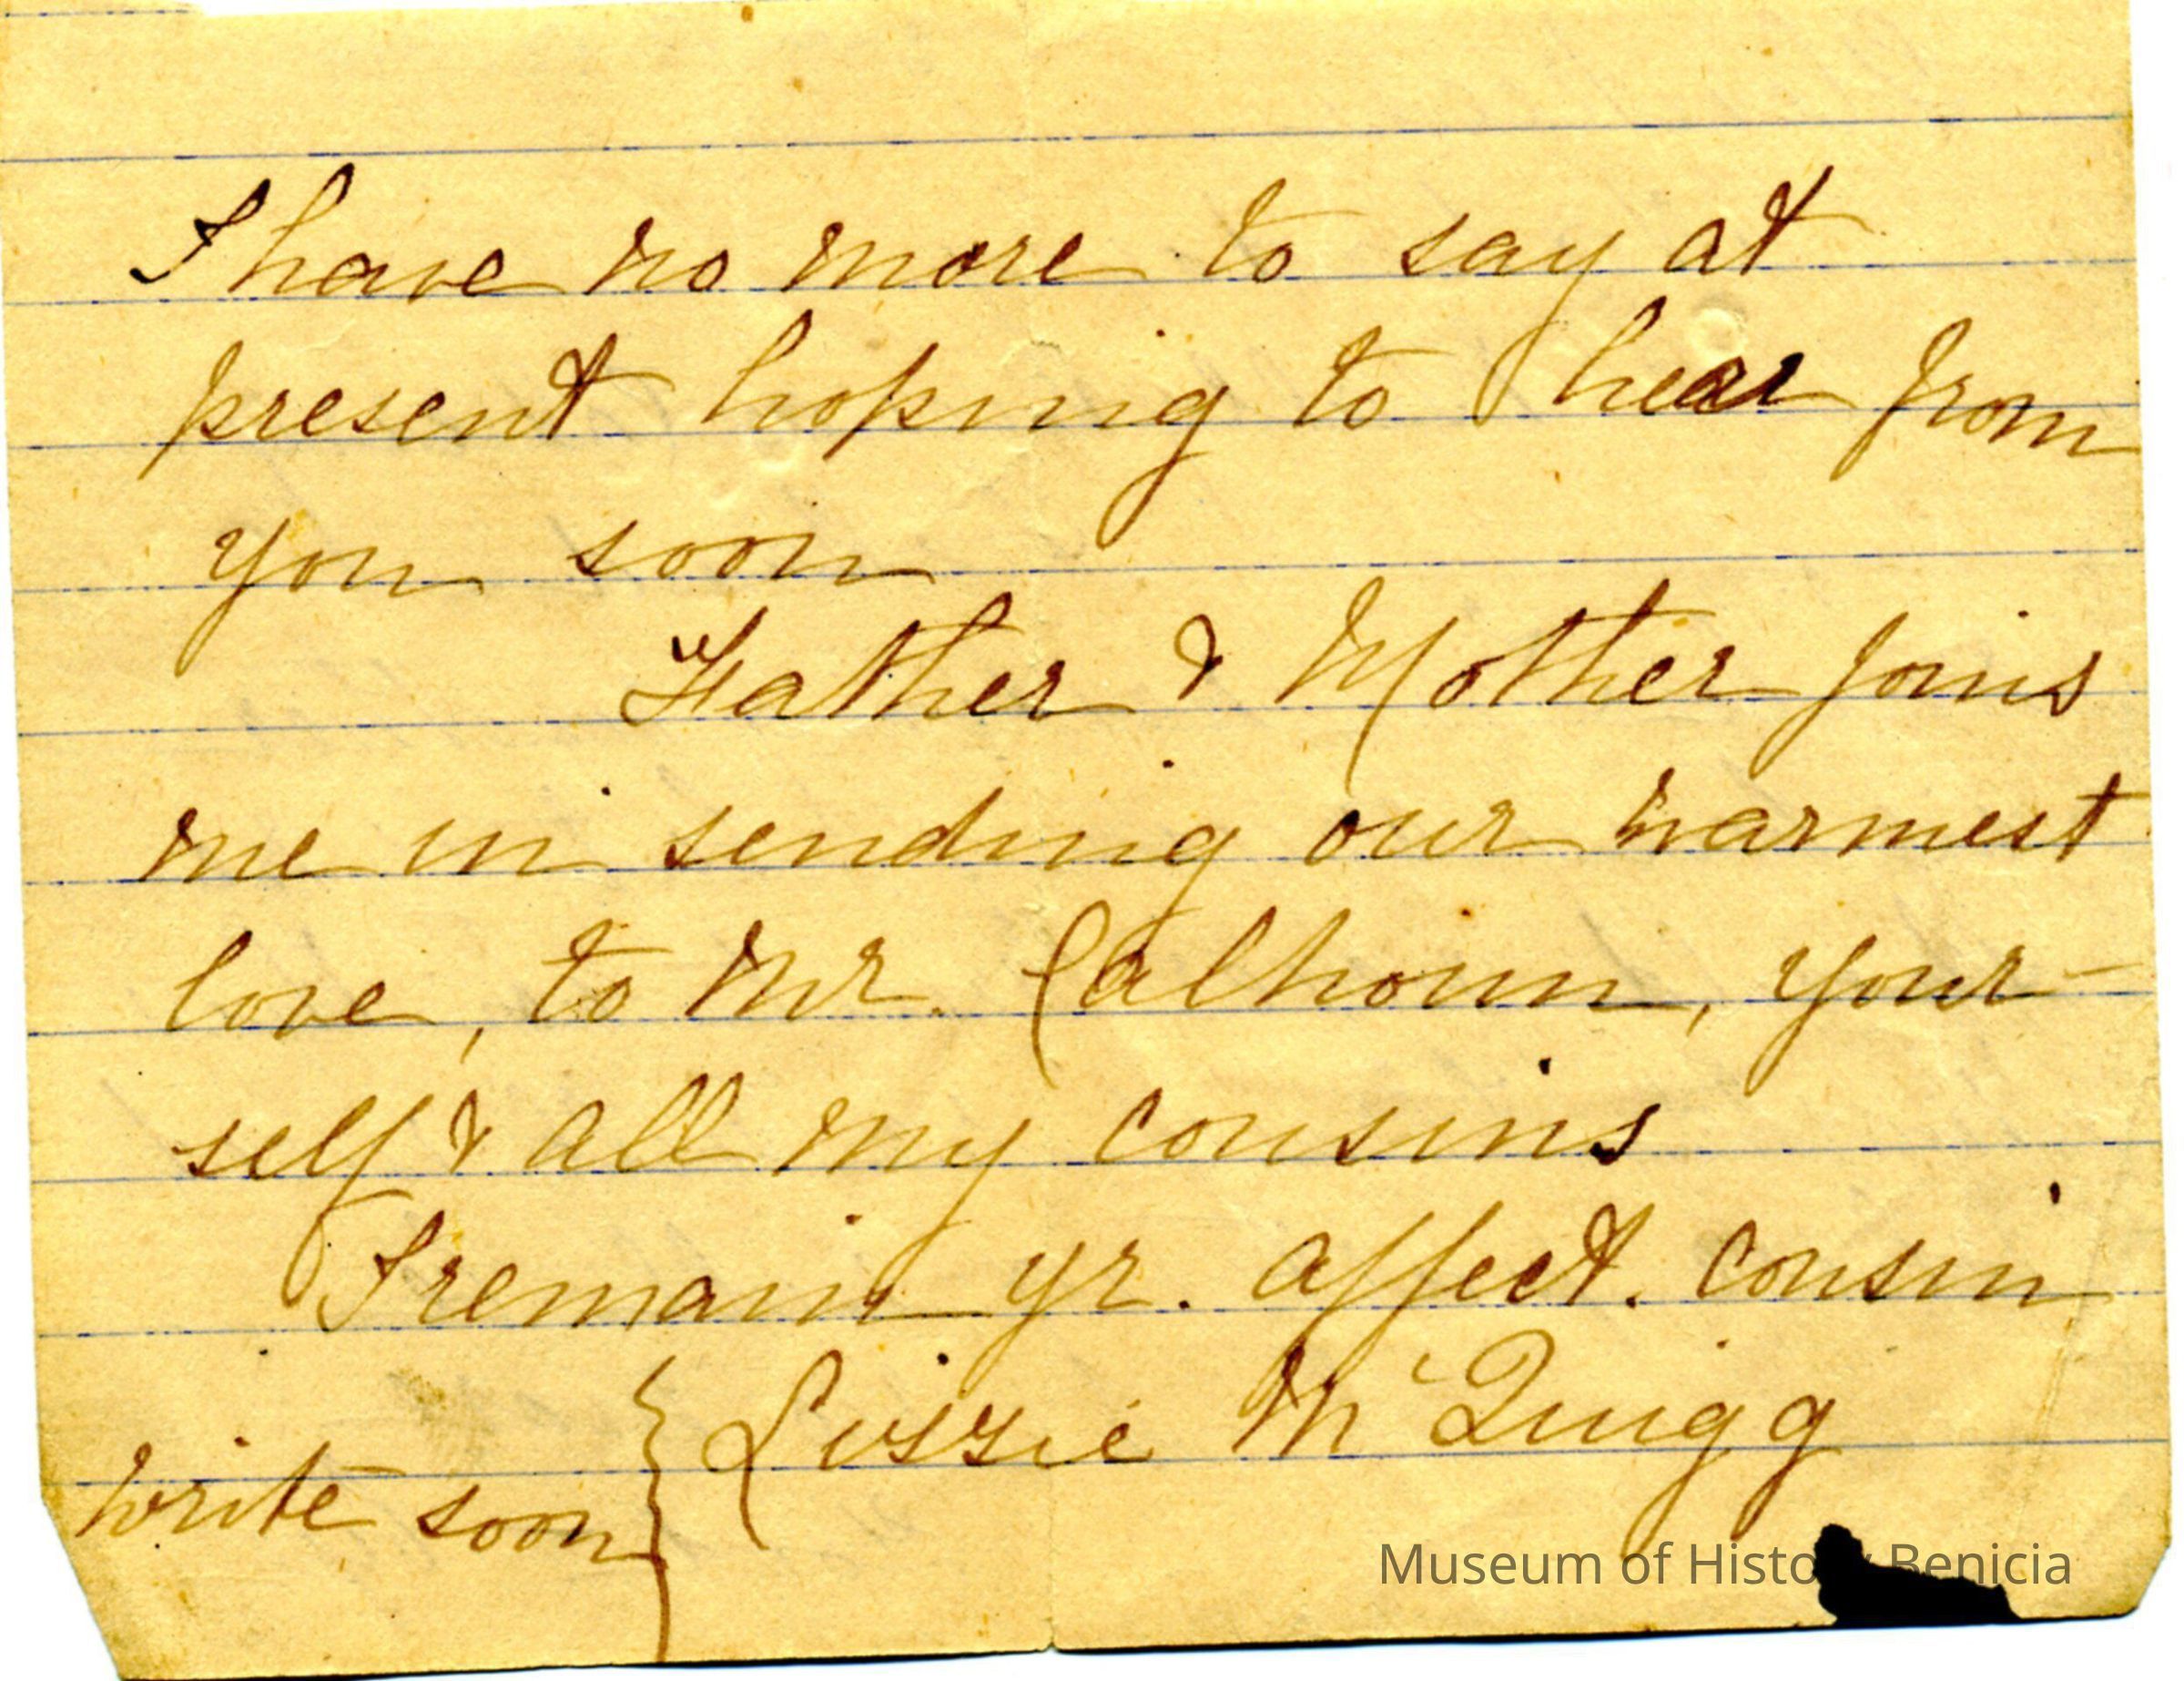 I have no more to say at
present hoping to hear from
you soon
Father & Mother joins
me in sending our warmest
love, to Mr. Calhoun, your-
self & all my cousins
I remain yr. affect. cousin
Lizzie McQuigg
write soon
Museum of History Benicia